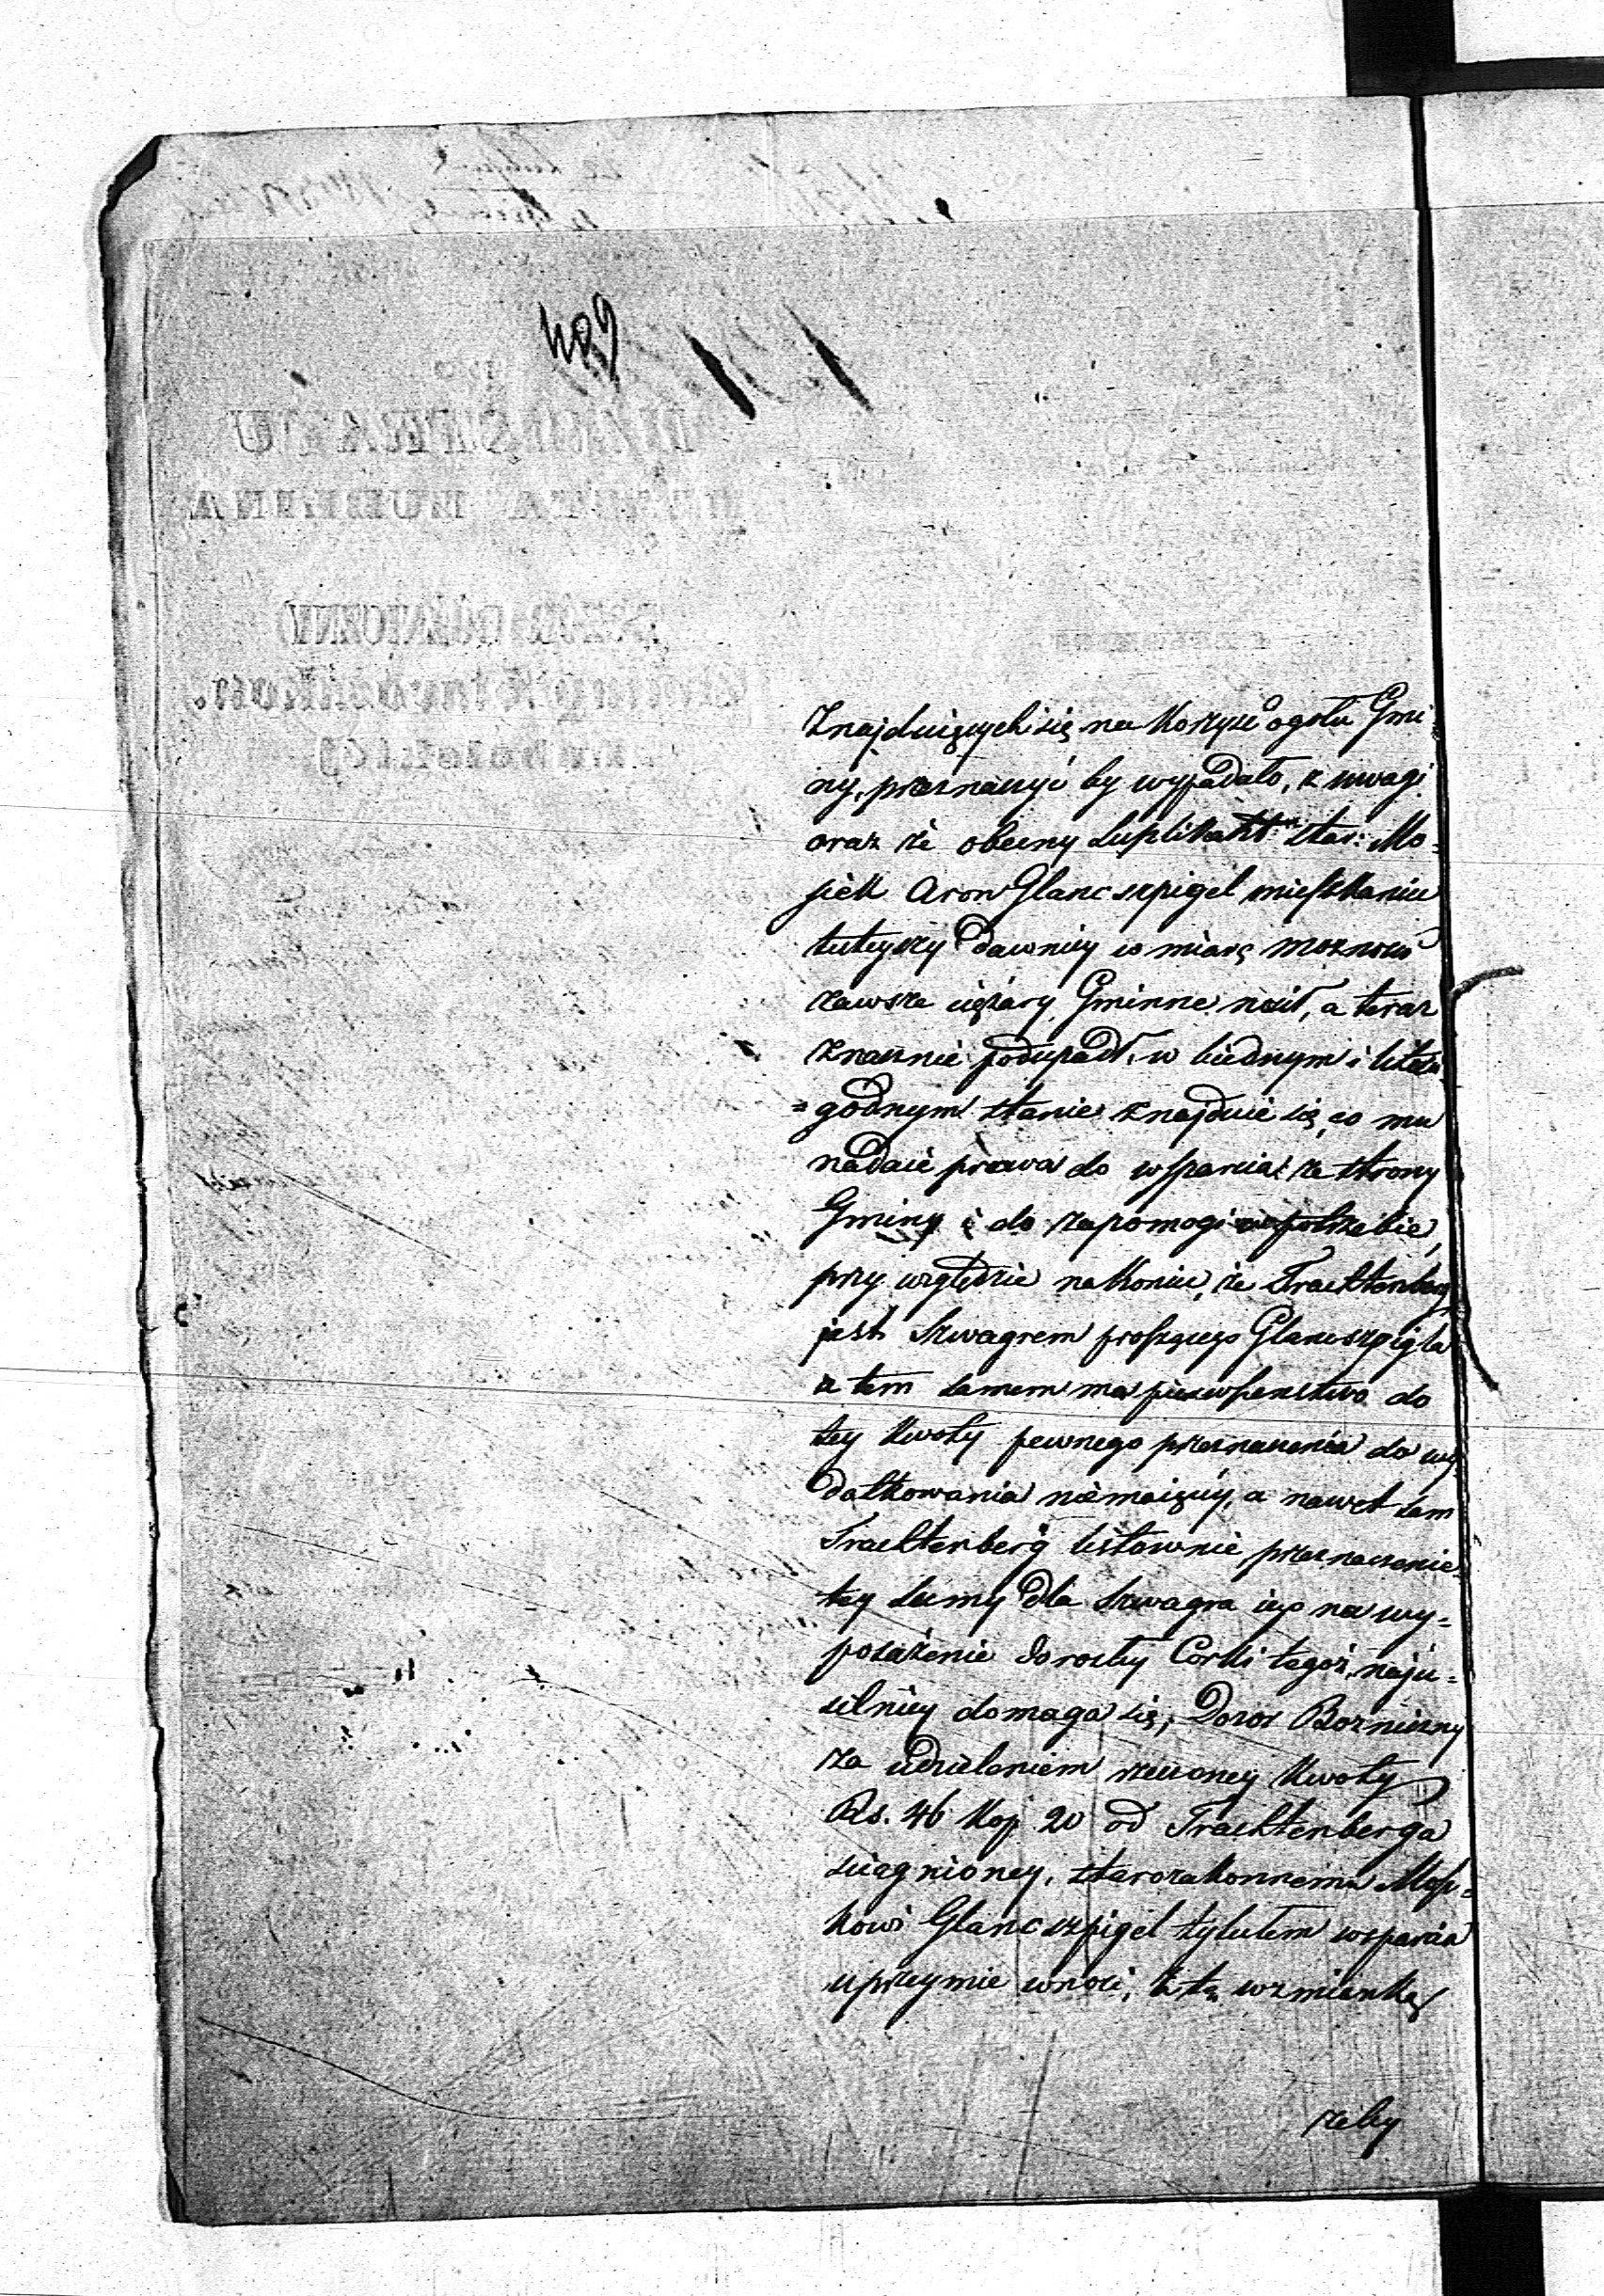 409
znajduiących się na korzyść ogółu Gmi-
ny, przeznaczyć by wypadało, z uwagi
oraz że obecny Suplikant star: Mo-
siek Aron Glancszpigel mieszkaniec
tuteyszy dawniey w miarę możności
zawsze ciężary Gminne nosił, a teraz
znacznie podupadł, w biednym i litości
=godnym stanie znajduie się, co mu
nadaie prawa do wsparcia ze strony
Gminy i do zapomogi w potrzebie,
przy względzie nakoniec, że Trachtenberg
jest Szwagrem proszącego Glancszpigla
a tem samem ma pierwszenstwo do
tey kwoty pewnego przeznaczenia do wy-
datkowania niemaiącey, a nawet sam
Trachtenberg listownie przeznaczenie
tey sumy dla szwagra iego na wy=
posażenie dorosłey Corki tegoż, naju=
silniey domaga się; Dozor Bozniczny
za udzieleniem rzeczoney kwoty
Rs. 46 kop 20 od Trachtenberga
sciągnioney, starozakonnemu Mosz=
kowi Glancszpigel tytułem wsparcia
uprzeymie wnosi, z tą wzmianką
żeby